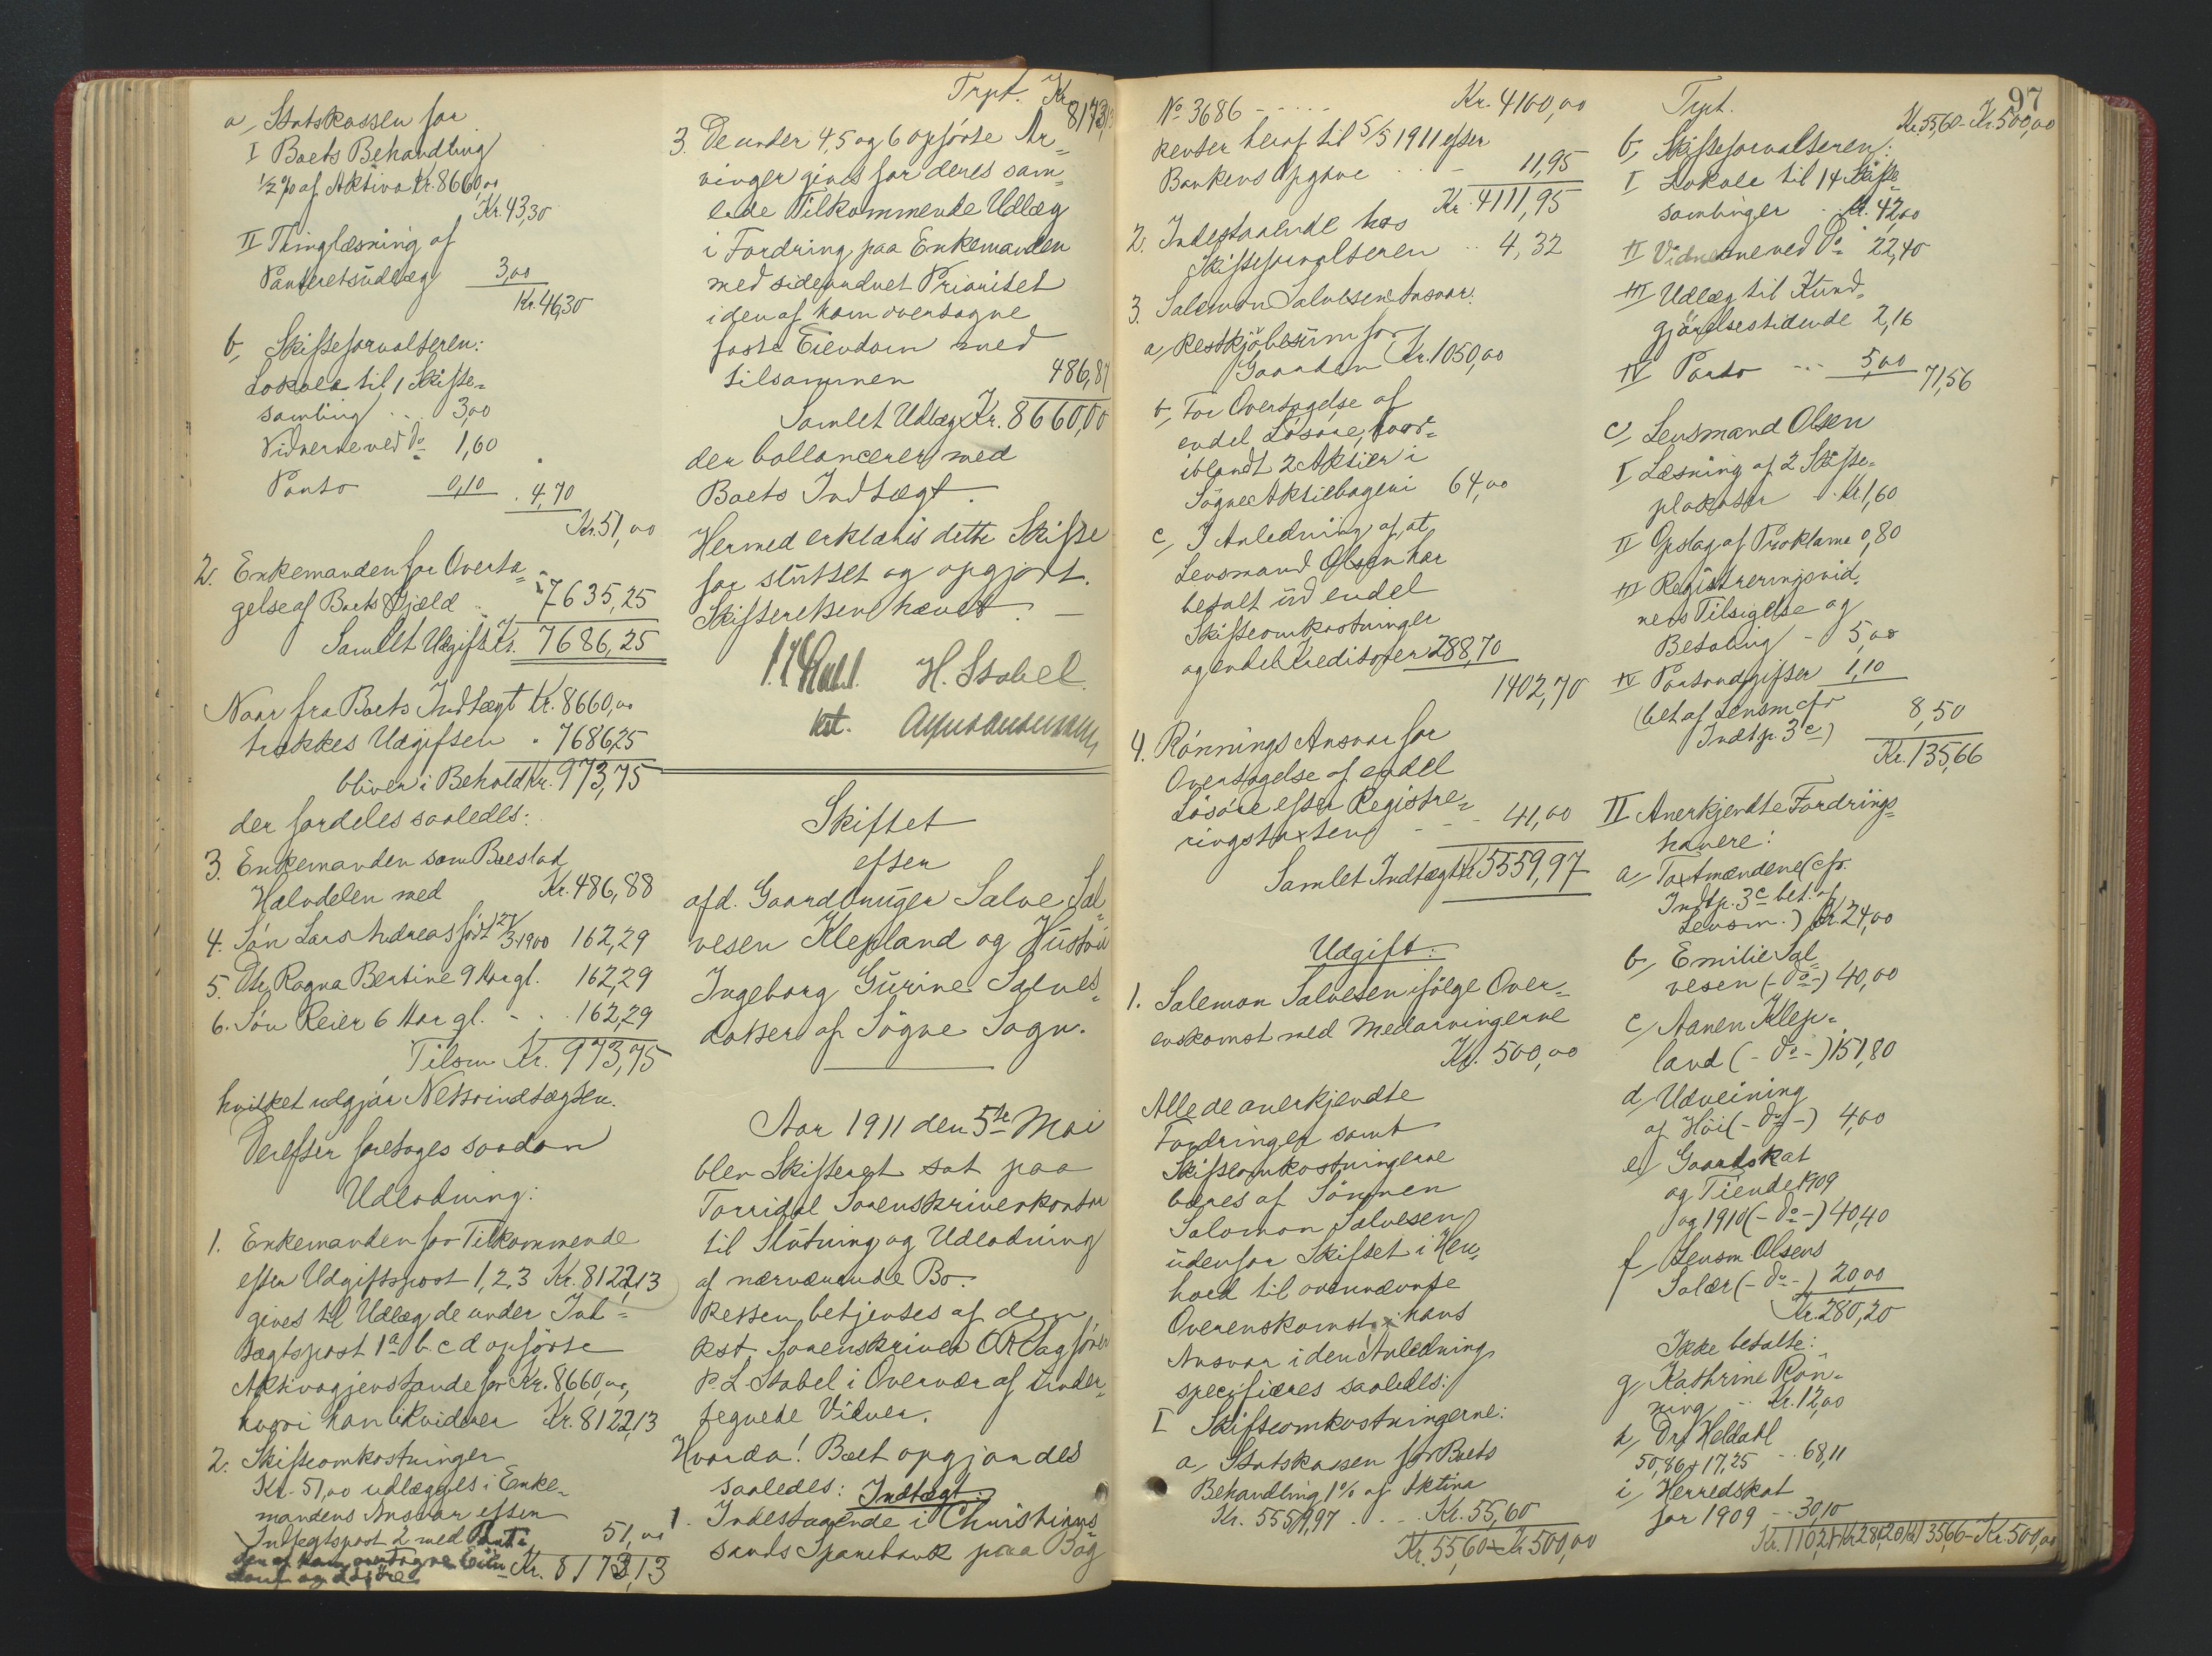 a, Statskassen for
I Boets Behandling
1/2 % af Aktiva Kr. 8660,00
Kr. 43,30
II Thinglæsning af
Panteretsudlæg 3,00
Kr. 46,30
b, Skifteforvalteren:
Lokale til 1 Skifte-
samling . . . 3,00
Vidnerne ved do 1,60
Porto 0,10 . 4,70
Kr. 51,00
2. Enkemanden for Overta-
gelse af Boets Gjæld . . 7635,25
Samlet Udgift Kr. 7686,25
Naar fra Boets Indtægt Kr. 8660,00
trækkes Udgiften " 7686,25
bliver i Behold Kr. 973,75
der fordeles saaledes:
3. Enkemanden som Boeslod
Halvdelen med Kr. 486,88
4. Søn Lars Andreas født 27/3 1900 162,29
5. Dtr. Ragna Bertine 9 Aar gl. 162,29
6. Søn Reier 6 Aar gl. - . . 162,29
Tilsm Kr. 973,75
hvilket udgjør Nettoindtægten.
Derefter foretoges saadan
Udlodning:
1. Enkemanden for Tilkommende
efter Udgiftspost 1, 2, 3 Kr. 8122,13
gives til Udlæg de under Ind-
tægtspost 1 a b. c d opførte
Aktivagjenstande for Kr. 8660,00,
hvori han likviderer Kr. 8122,13
2. Skifteomkostninger
Kr. 51,00 udlægges i Enke-
mandens Ansvar efter
Indtægtspost 2 med Pant i 51,00
den af ham overtagne Eien-
dom og Løsøre Kr. 8173,13
Trpt. Kr. 8173,13
3. De under 4, 5 og 6 opførte Ar-
vinger gives for deres sam-
lede Tilkommende Udlæg
i Fordring paa Enkemanden
med sideordnet Prioritet
i den af ham overtagne
faste Eiendom med
tilsammen 486,87
Samlet Udlæg Kr. 8660,00
der ballancerer med
Boets Indtægt.
Hermed erklæres dette Skifte
for sluttet og opgjort.
Skifteretten hævet. —
H. Stabel
kst.
Skiftet
efter
afd. Gaardbruger Salve Sal-
vesen Klepland og Hustru
Ingeborg Gurine Salves-
datter af Søgne Sogn.
Aar 1911 den 5te Mai
blev Skifteret sat paa
Torridal Sorenskriverkontor
til Slutning og Udlodning
af nærværende Bo.
Retten betjentes af den
kst. Sorenskriver ORsagfører
P. L. Stabel i Overvær af under-
tegnede Vidner.
Hvorda! Boet opgjordes
saaledes: Indtægt:
1. Indestaaende i Christians-
sands Sparebank paa Bog
97
No 3686 - . . . . Kr. 4100,00
Renter heraf til 5/5 1911 efter
Bankens Opgave . . . - 11,95
Kr. 4111,95
2. Indestaaende hos
Skifteforvalteren . . 4,32
3. Salomon Salvesens Ansvar:
a, Restkjøbesum for
Gaarden Kr. 1050,00
b, For Overtagelse af
endel Løsøre, hvor-
iblandt 2 Aktier i
Søgne Aktiebageri 64,00
c, I Anledning af, at
Lensmand Olsen har
betalt ud endel
Skifteomkostninger
og endel Kreditorer 288,70
1402,70
4. Rønnings Ansvar for
Overtagelse af endel
Løsøre efter Registre-
ringstaxten - - - 41,00
Samlet Indtægt Kr. 5559,97
Udgift:
1. Salemon Salvesen ifølge Over-
enskomst med Medarvingerne
Kr. 500,00
Alle de anerkjendte
Fordringer samt
Skifteomkostningerne
bæres af Sønnen
Salomon Salvesen
udenfor Skiftet i Hen-
hold til ovennævnte
Overenskomst; hans
Ansvar i den Anledning
specifiseres saaledes:
I Skifteomkostningerne:
a, Statskassen for Boets
Behandling 1% af Aktiva
Kr. 5559,97 . . . . Kr. 55,60
Kr. 55,60 - Kr. 500,00
Trpt. Kr. 55,60 - Kr. 500,00
b, Skifteforvalteren:
I Lokale til 14 Skifte-
samlinger . . Kr. 42,00
II Vidnerne ved do 22,40
III Udlæg til Kund-
gjørelsestidende 2,16
IV Porto . . . 5,00 71,56
c, Lensmand Olsen
I Læsning af 2 Skifte-
plakater . Kr. 1,60
II Opslag af Proklama 0,80
III Registreringsvid-
ners Tilsigelse og
Betaling - 5,00
IV Portoudgifter 1,10
(bet af Lensm cfr
Indtp. 3 c) 8,50
Kr. 135,66
II Anerkjendte Fordrings-
havere:
a, Taxtmændene (cfr.
Indtp. 3 c bet. af
Lensm.) Kr. 24,00
b, Emilie Sal-
vesen (- do -) 40,00
c, Aanen Klep-
land (- do -) 151,80
d, Udveining
af Høi (- do -) 4,00
e, Gaardskat
og Tiende 1909
og 1910 (- do -) 40,40
f, Lensm Olsens
Salær (- do -) 20,00
Kr. 280,20
Ikke betalte:
g, Kathrine Røn-
ning . . Kr. 12,00
h, Dr Heldahl
50,86 + 17,25 . . 68,11
i, Herredskat
for 1909 - - 30,10
Kr. 110,21 + Kr. 280,20 + Kr. 135,66 - Kr. 500,00